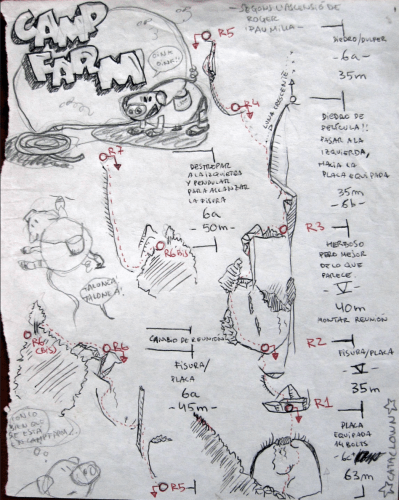 CAMP
FARM
OINK
OINK!!
- SEGONS L'ASCENSIÓ DE
ROGER
I PAU MILLA -
R5
DIEDRO/DULFER
- 6a -
35m
R4
LUNA CRECIENTE
DIEDRO DE
PELÍCULA!!
PASAR A LA
IZQUIERDA,
HACIA LA
PLACA EQUIPADA
35m
- 6b -
R7
DESTREPAR
A LA IZQUIERDA
Y PENDULAR
PARA ALCANZAR
LA FISURA
6a
- 50m -
R6 BIS
R3
HERBOSO
PERO MEJOR
DE LO QUE
PARECE
- V -
40m
MONTAR REUNIÓN
¡TALONCA,
TALONCA!
R6
(BIS)
R6
CAMBIO DE REUNIÓN
R2
FISURA/PLACA
- V -
35m
FISURA/
PLACA
6a
- 45m -
R1
PLACA
EQUIPADA
14 BOLTS
63m
R5
CATACLOWN